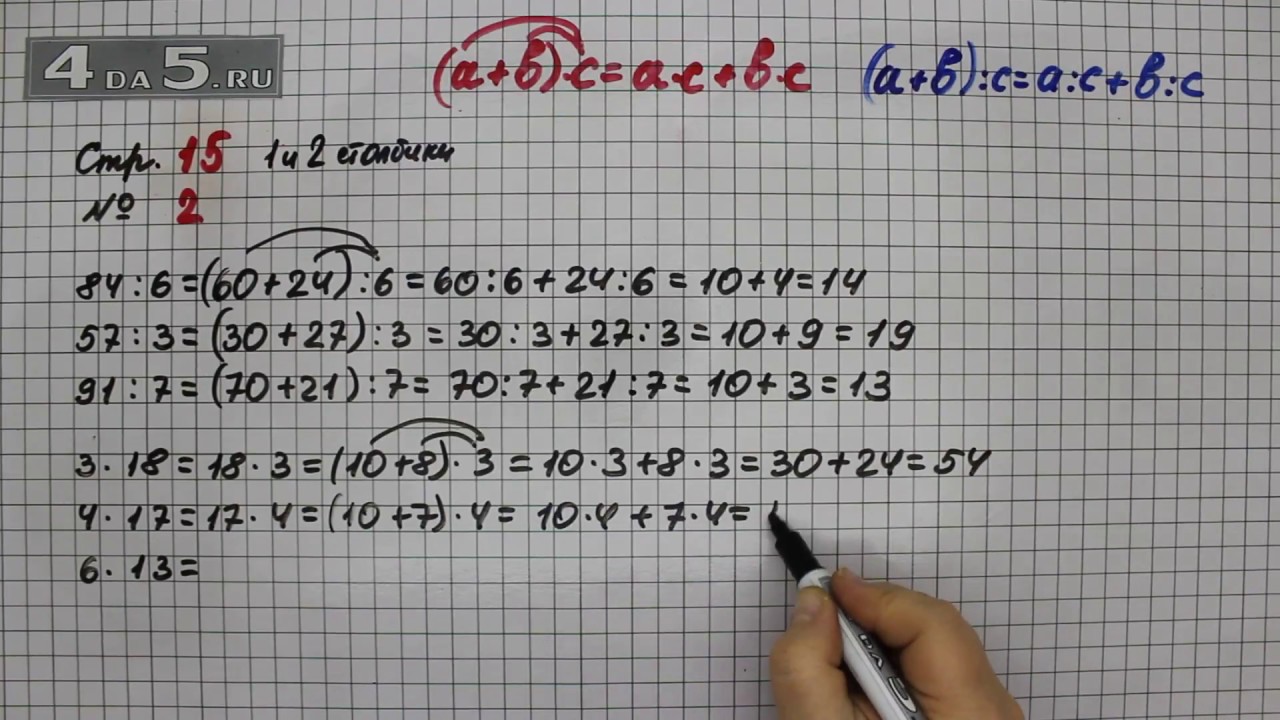 4 DA 5.RU
(а+в)·с=а·с+в·с (а+в):с=а:с+в:с
Стр. 15 1 и 2 столбики
№ 2
84:6=(60+24):6=60:6+24:6=10+4=14
57:3=(30+27):3=30:3+27:3=10+9=19
91:7=(70+21):7=70:7+21:7=10+3=13
3·18=18·3=(10+8)·3=10·3+8·3=30+24=54
4·17=17·4=(10+7)·4=10·4+7·4=
6·13=